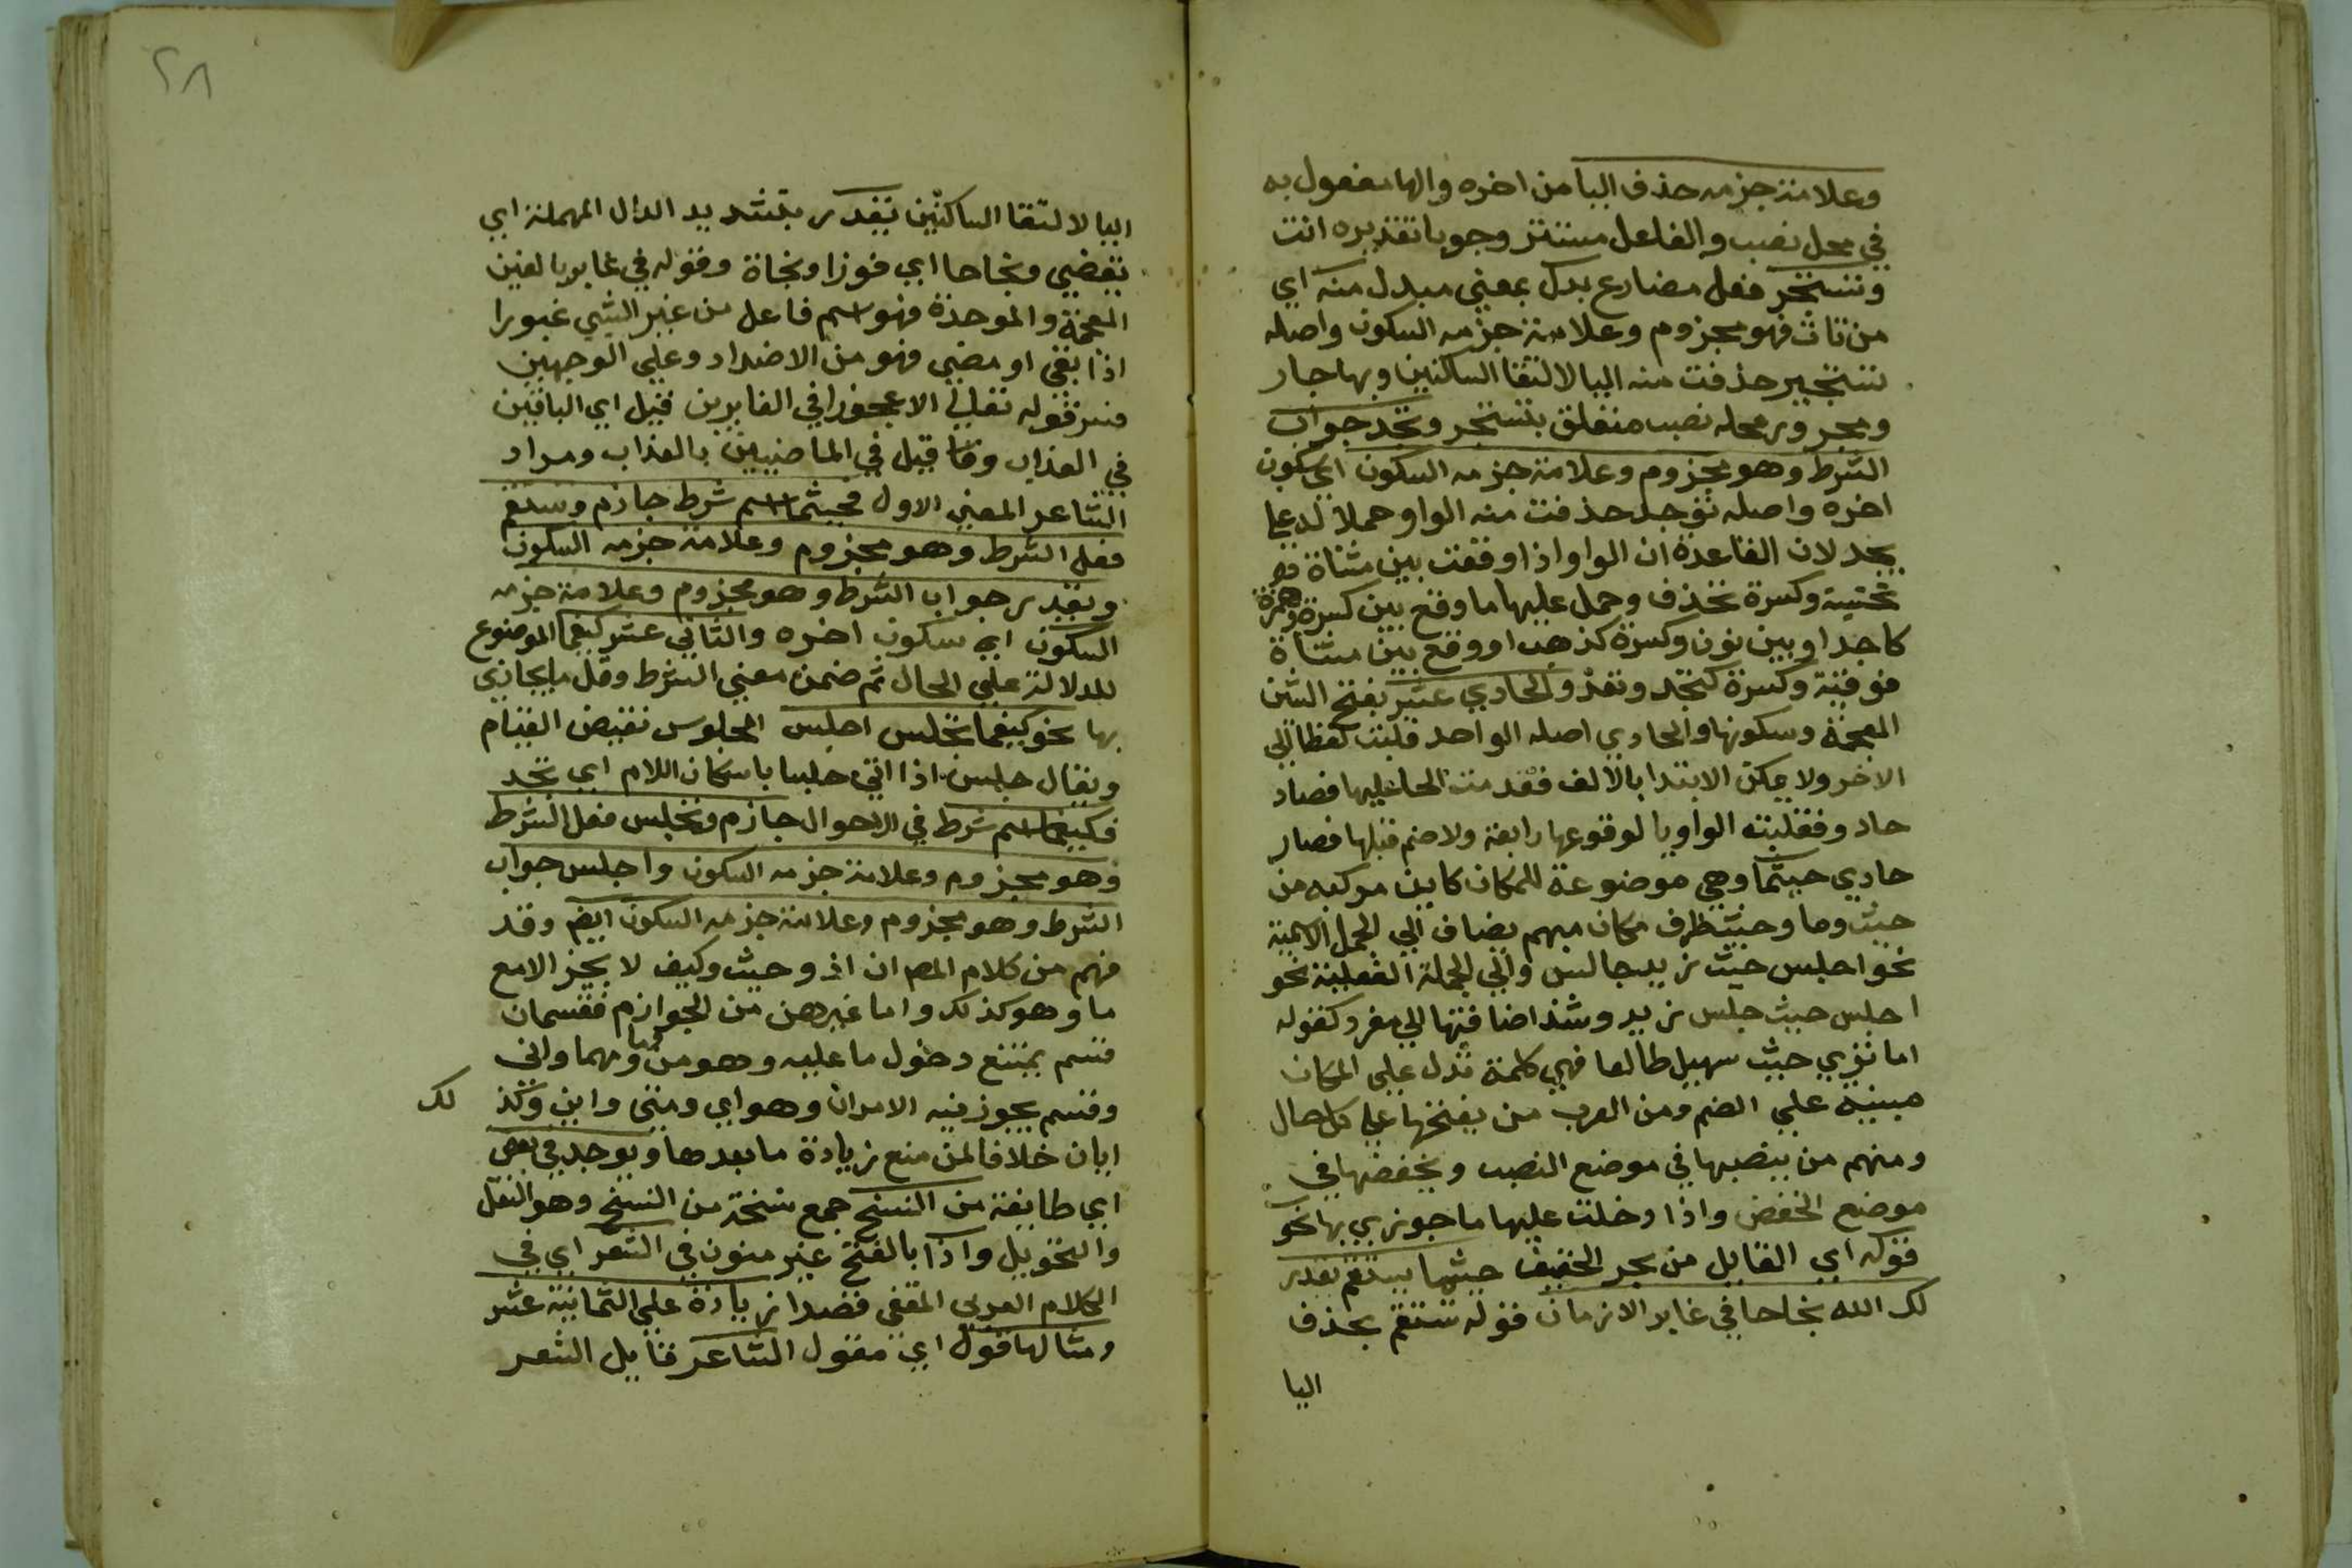 وعلامة جزمه حذف اليا من اخره والها مفعول به
في محل نصب والفاعل مستتر وجوبا تقديره انت
وتستجر فعل مضارع بدل بمعني مبدل منه اي
من تات فهو مجزوم وعلامة جزمه السكون واصله
تستجير حذفت منه اليا لالتقا الساكنين وبها جار
ومجرور محله نصب متعلق بتستجر وتجد جواب
الشرط وهو مجزوم وعلامة جزمه السكون اي سكون
اخره واصله توجد حذفت منه الواو حملا له علي
يجد لان القاعدة ان الواو اذا وقعت بين مثناة
تحتية وكسرة تحذف وحمل عليها ما وقع بين كسرة وهمزة
كاجد او بين نون وكسرة كنهب او وقع بين مثناة
فوقية وكسرة كتجد وتعد والحادي عشر بفتح الشين
المعجمة وسكونها والحادي اصله الواحد قلبت لفظا الي
الاخر ولا يمكن الابتدا بالالف فقدمت الحا عليها فصار
حادو فقلبت الواو يا لوقوعها رابعة ولا ضم قبلها فصار
حادي حيثما وهي موضوعة للمكان كاين مركبه من
حيث وما وحيث ظرف مكان مبهم يضاف الي الجمل الاسمية
نحو اجلس حيث زيد جالس والي الجملة الفعلية نحو
اجلس حيث جلس زيد وشذ اضافتها الي مفرد كقوله
اما تري حيث سهيل طالعا فهي كلمة تدل علي المكان
مبنيه علي الضم ومن العرب من يفتحها علي كل حال
ومنهم من ينصبها في موضع النصب ويخفضها في
موضع الخفض واذا دخلت عليها ما جوزي بها نحو
قوله اي القايل من بحر الخفيف حيثما تستقم يقدر
لك الله نجاحا في غابر الازمان قوله تستقم بحذف
اليا
٢٨
اليا لالتقا الساكنين يقدر بتشديد الدال المهملة اي
يقضي ونجاحا اي فوزا ونجاة وقوله في غابر بالغين
المعجمة والموحدة فهو اسم فاعل من غبر الشي غبورا
اذا بقي او مضي فهو من الاضداد وعلي الوجهين
فسر قوله تعالي الا عجوزا في الغابرين قيل اي الباقين
في العذاب وقد قيل في الماضيين بالعذاب ومراد
الشاعر المعني الاول فحيثما اسم شرط جازم وتستقم
فعل الشرط وهو مجزوم وعلامة جزمه السكون
ويقدر جواب الشرط وهو مجزوم وعلامة جزمه
السكون اي سكون اخره والثاني عشر كيفما الموضوع
للدلالة علي الحال ثم ضمن معني الشرط وقل ما يجازي
بها نحو كيفما تجلس اجلس الجلوس نقيض القيام
ويقال جلس اذا اتي جلسا باسكان اللام اي نجد
فكيفما اسم شرط في الاحوال جازم وتجلس فعل الشرط
وهو مجزوم وعلامة جزمه السكون واجلس جواب
الشرط وهو مجزوم وعلامة جزمه السكون ايضم وقد
فهم من كلام المص ان اذ وحيث وكيف لا يجز الا مع
ما وهو كذلك واما غيرهن من الجوازم فقسمان
قسم يمتنع دخول ما عليه وهو من وما ومهما واني
وقسم يجوز فيه الامران وهو اي ومتي واين وكذ لك
ايان خلافا لمن منع زيادة ما بعدها ويوجد في بعض
اي طايفة من النسخ جمع نسخة من النسخ وهو النقل
والتحويل واذا بالفتح غير منون في الشعر اي في
الكلام العربي المقفي قصدا زيادة علي الثمانية عشر
ومثالها قول اي مقول الشاعر قايل الشعر